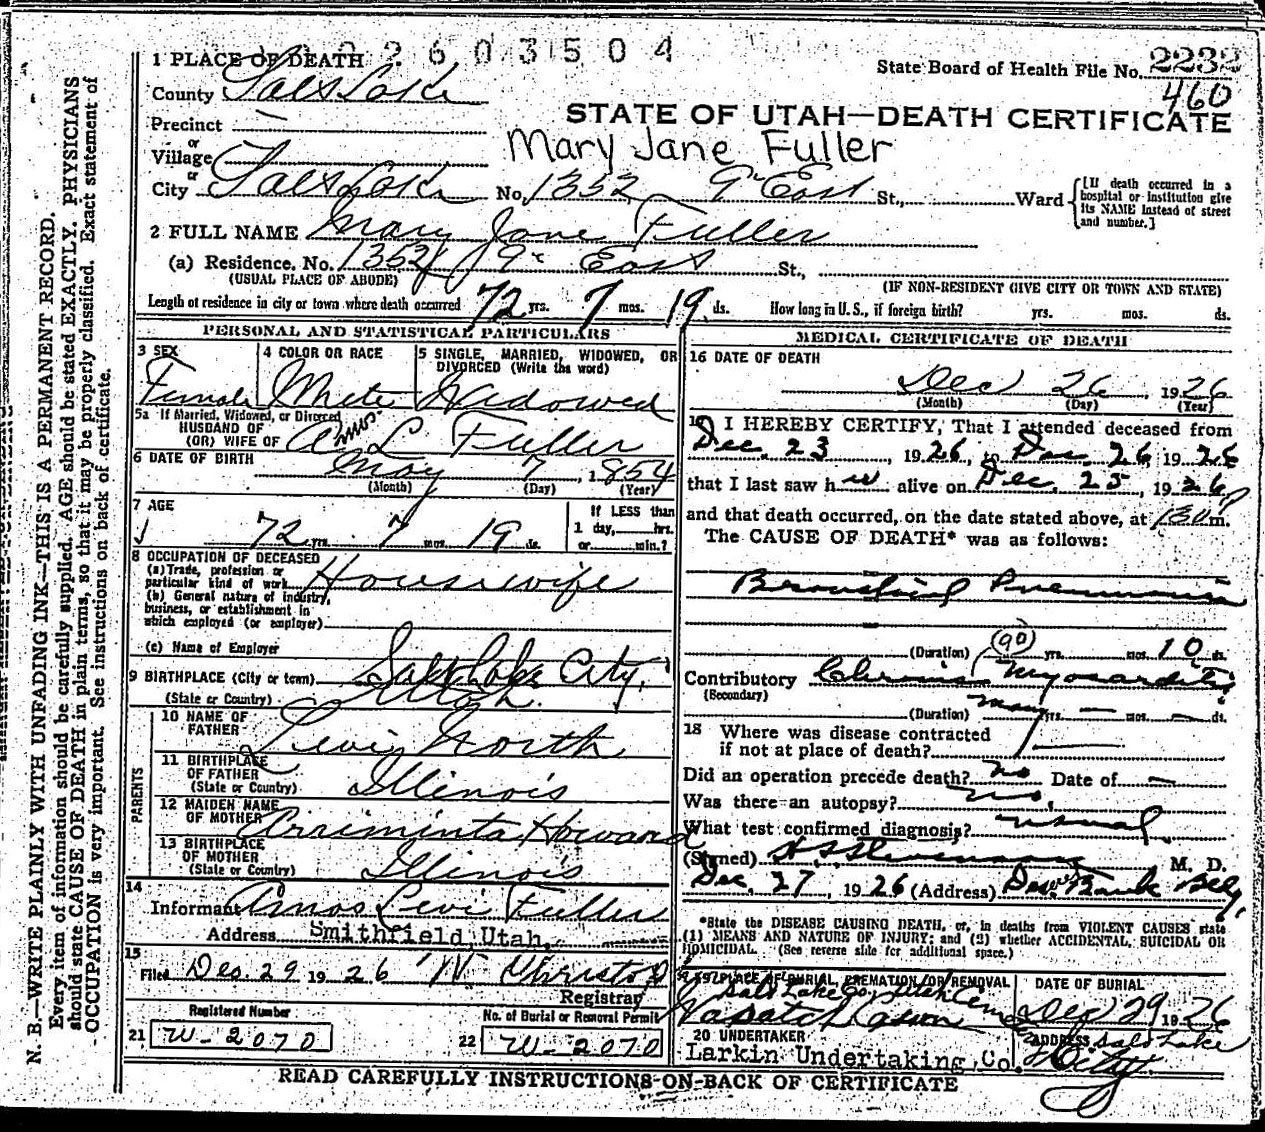 2603504
1 PLACE OF DEATH
State Board of Health File No. 2232
460
County Salt Lake
STATE OF UTAH—DEATH CERTIFICATE
Precinct
Mary Jane Fuller
or
Village
or
City Salt Lake No. 1352 9th East St., Ward
[If death occurred in a
hospital or institution give
its NAME instead of street
and number.]
2 FULL NAME Mary Jane Fuller
(a) Residence. No. 1352 9th East St.,
(USUAL PLACE OF ABODE) (IF NON-RESIDENT GIVE CITY OR TOWN AND STATE)
Length of residence in city or town where death occurred 72 yrs. 7 mos. 19 ds. How long in U. S., if foreign birth? yrs. mos. ds.
PERSONAL AND STATISTICAL PARTICULARS
3 SEX 4 COLOR OR RACE 5 SINGLE, MARRIED, WIDOWED, OR
DIVORCED (Write the word)
Female White Widowed
5a If Married, Widowed, or Divorced
HUSBAND OF
(OR) WIFE OF Amos L Fuller
6 DATE OF BIRTH May 7, 1854
(Month) (Day) (Year)
7 AGE
72 yrs. 7 mos. 19 ds.
If LESS than
1 day, hrs.
or min.?
8 OCCUPATION OF DECEASED
(a) Trade, profession or
particular kind of work Housewife
(b) General nature of industry,
business, or establishment in
which employed (or employer)
(c) Name of Employer
9 BIRTHPLACE (City or town) Salt Lake City,
(State or Country) Utah.
PARENTS
10 NAME OF
FATHER Levi North
11 BIRTHPLACE
OF FATHER Illinois
(State or Country)
12 MAIDEN NAME
OF MOTHER Arriminta Howard
13 BIRTHPLACE
OF MOTHER Illinois
(State or Country)
14
Informant Amos Levi Fuller
Address Smithfield, Utah.
15
Filed Dec. 29 1926
Registrar
Registered Number No. of Burial or Removal Permit
21 W-2070 22 W-2070
MEDICAL CERTIFICATE OF DEATH
16 DATE OF DEATH
Dec 26 1926
(Month) (Day) (Year)
17 I HEREBY CERTIFY, That I attended deceased from
Dec. 23, 1926, to Dec 26 1926
that I last saw her alive on Dec. 25, 1926
and that death occurred, on the date stated above, at 130 P m.
The CAUSE OF DEATH* was as follows:
Bronchial Pneumonia
(90)
(Duration) yrs. mos. 10 ds.
Contributory Chronic Myocarditis
(Secondary)
(Duration) many yrs. — mos. — ds.
18 Where was disease contracted
if not at place of death?
Did an operation precede death? no Date of —
Was there an autopsy? no.
What test confirmed diagnosis? usual
(Signed) M. D.
Dec. 27, 1926 (Address) Des. Bank Bldg.
*State the DISEASE CAUSING DEATH, or, in deaths from VIOLENT CAUSES state
(1) MEANS AND NATURE OF INJURY; and (2) whether ACCIDENTAL, SUICIDAL OR
HOMICIDAL. (See reverse side for additional space.)
19 PLACE OF BURIAL, CREMATION (OR) REMOVAL DATE OF BURIAL
Salt Lake Co., Utah
Wasatch Lawn Dec 29 1926
20 UNDERTAKER ADDRESS Salt Lake
Larkin Undertaking Co. City.
READ CAREFULLY INSTRUCTIONS ON BACK OF CERTIFICATE
N. B.—WRITE PLAINLY WITH UNFADING INK—THIS IS A PERMANENT RECORD.
Every item of information should be carefully supplied. AGE should be stated EXACTLY. PHYSICIANS
should state CAUSE OF DEATH in plain terms, so that it may be properly classified. Exact statement of
OCCUPATION is very important. See instructions on back of certificate.